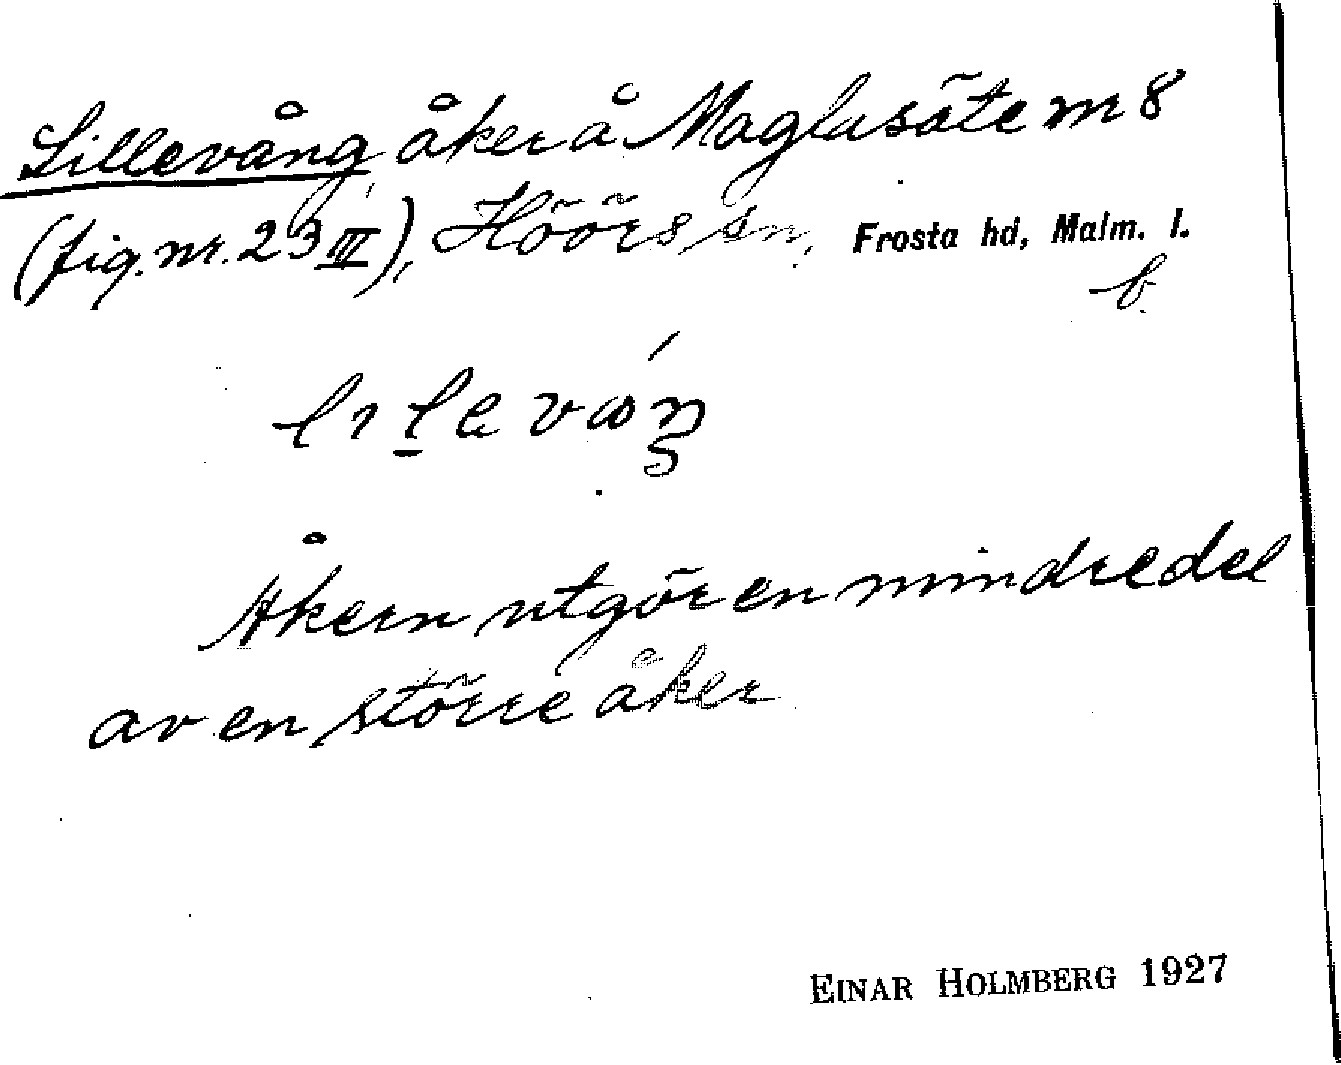 Lillevång åker å Maglasäte nr 8
(fig. nr. 23 III), Höörs sn, Frosta hd, Malm. l.
b.
Åkern utgör en mindre del
av en större åker
EINAR HOLMBERG 1927